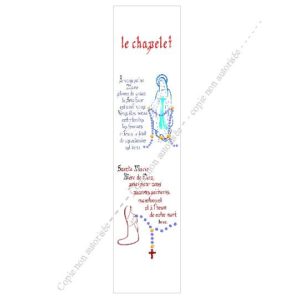 le chapelet
Je vous salue
Marie
pleine de grâce
le Seigneur
est avec vous
Vous êtes bénie
entre toutes
les femmes
et Jésus
Sainte Marie
Mère de Dieu
priez pour nous
pauvres pécheurs
maintenant
et à l'heure
de notre mort
Copie non autorisée - - - copie non autorisée - - -